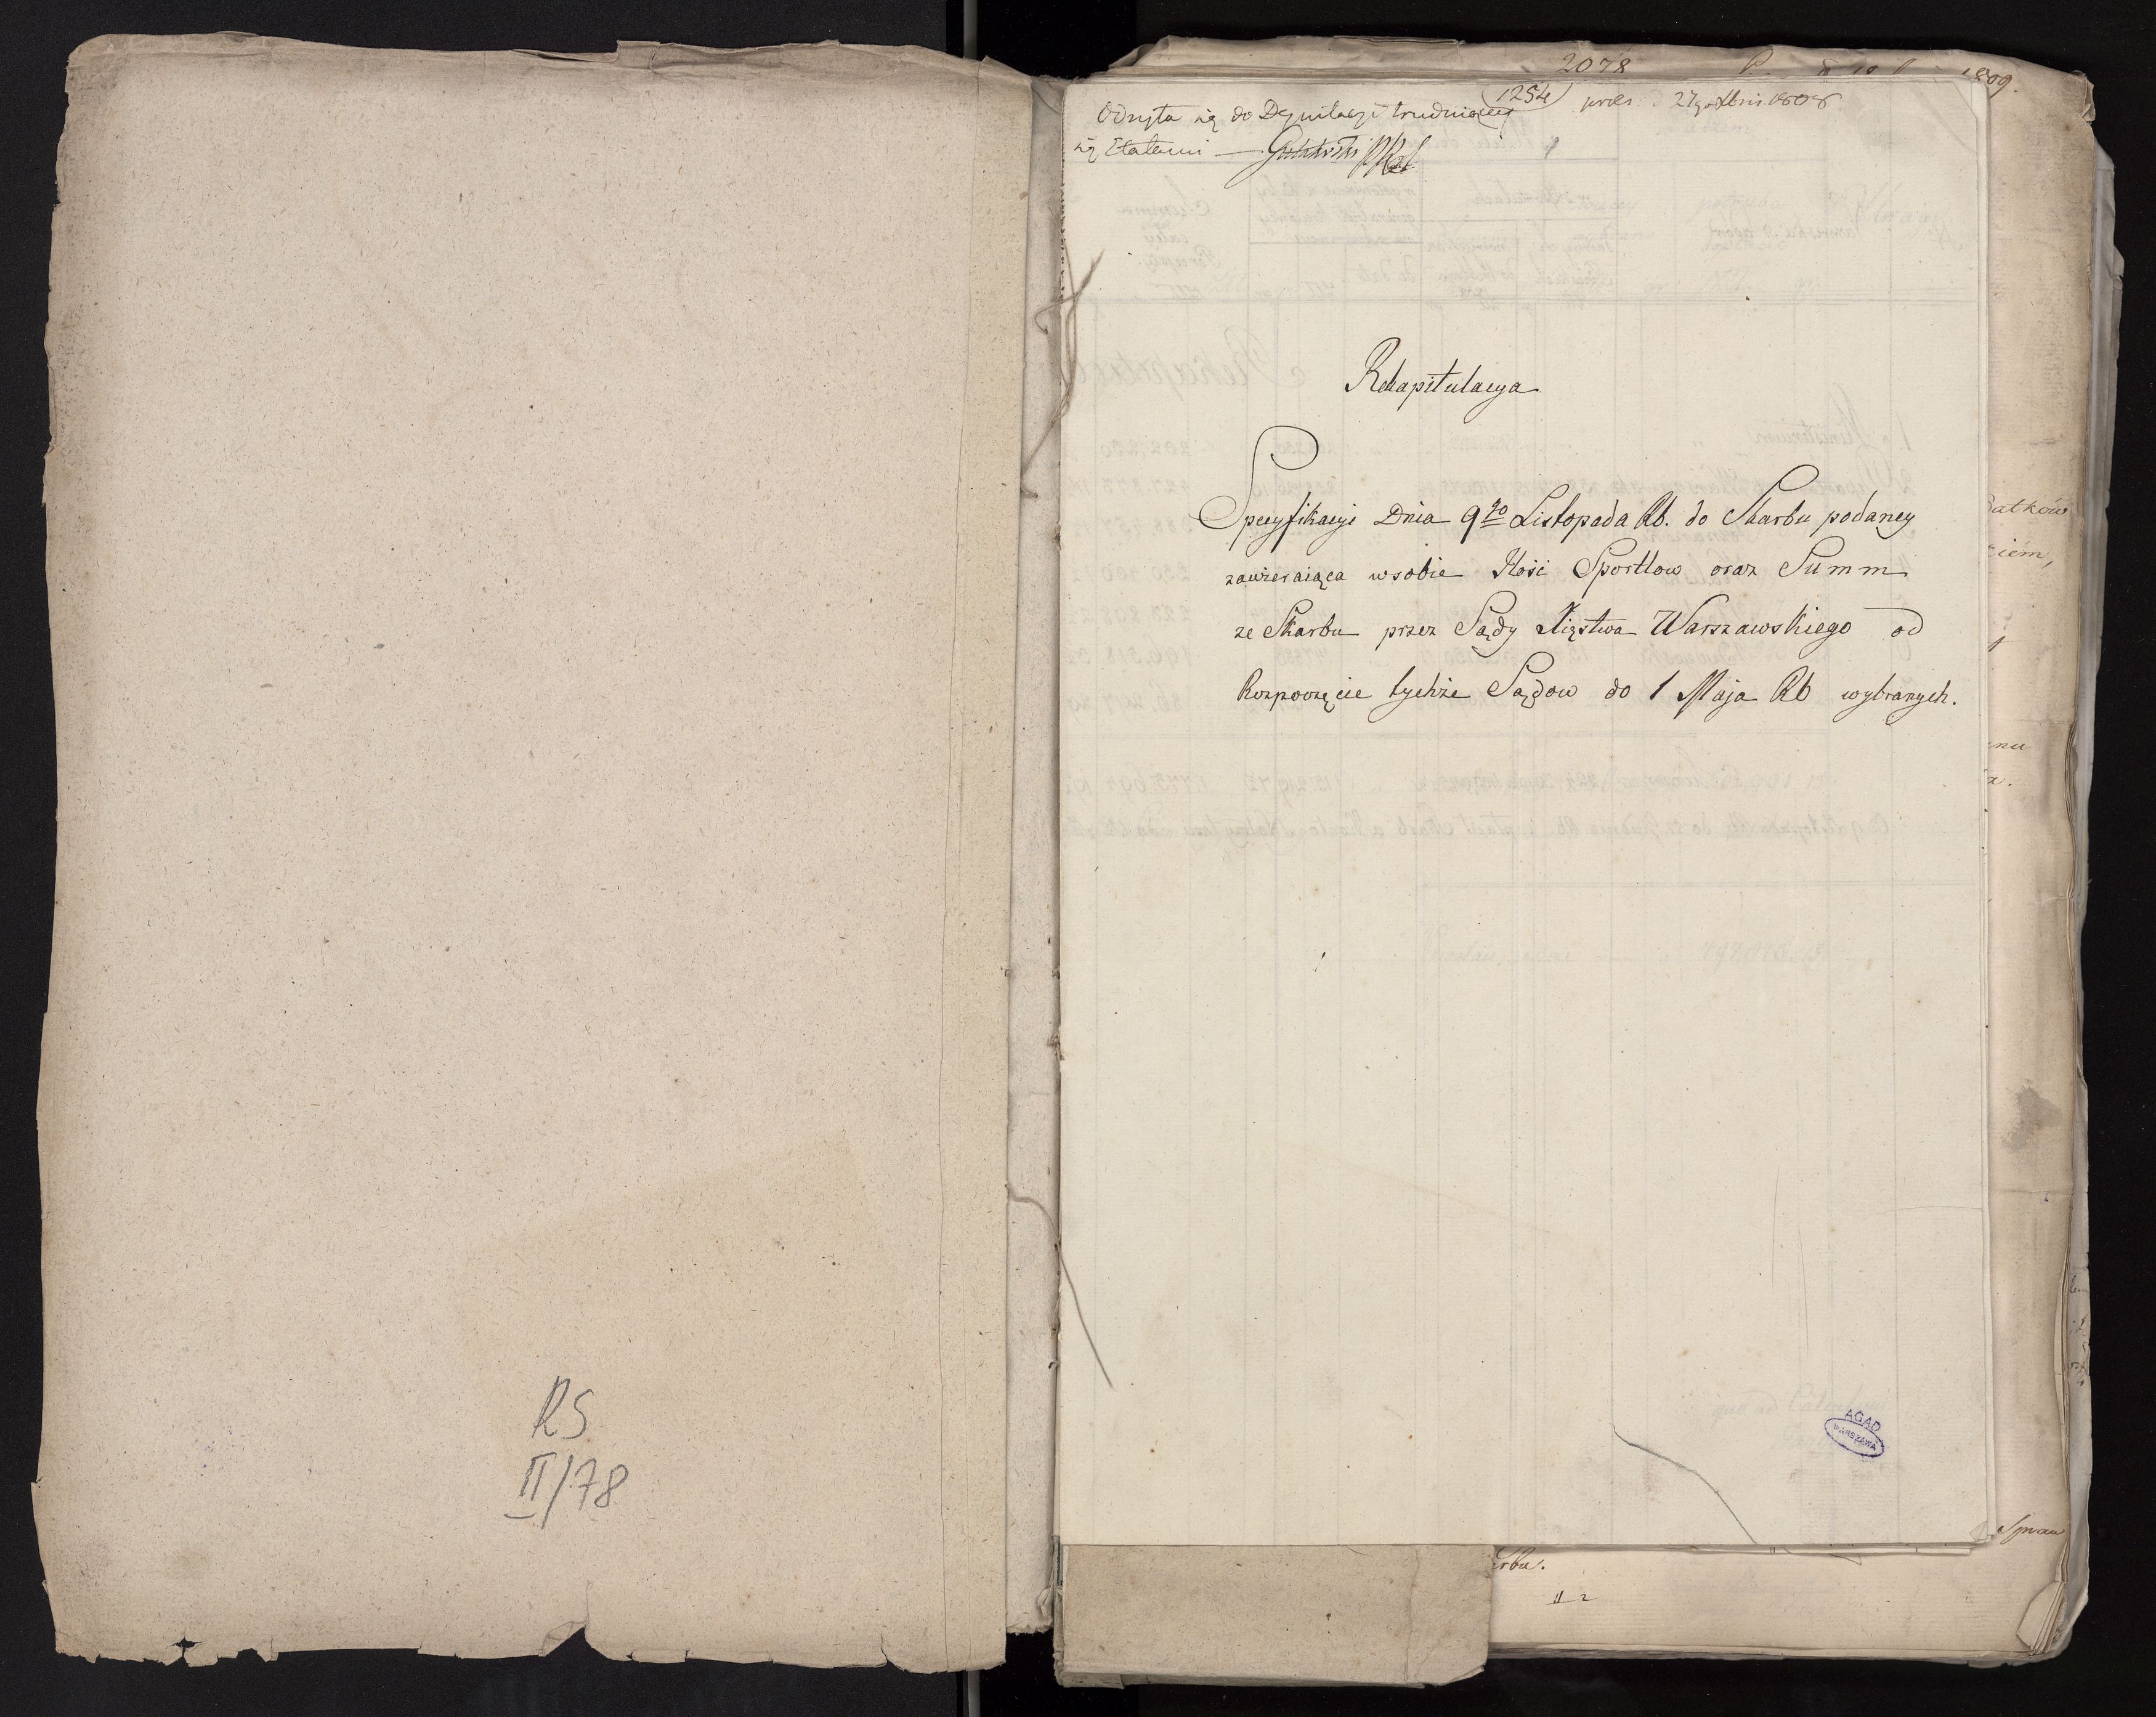 RS
II/78
2078
1809.
1254
pres. d 27go Xbris 1808
Odsyła się do Deputacyi trudniącey
się Etatami —
Rekapitulacya
Specyfikacyi Dnia 9go Listopada Rb. do Skarbu podaney
zawieraiąca w sobie Ilość Sportlow oraz Summ
ze Skarbu przez Sądy Xięstwa Warszawskiego od
Rozpoczęcie tychże Sądow do 1 Maja Rb wybranych.
AGAD
WARSZAWA
datków
ciém,